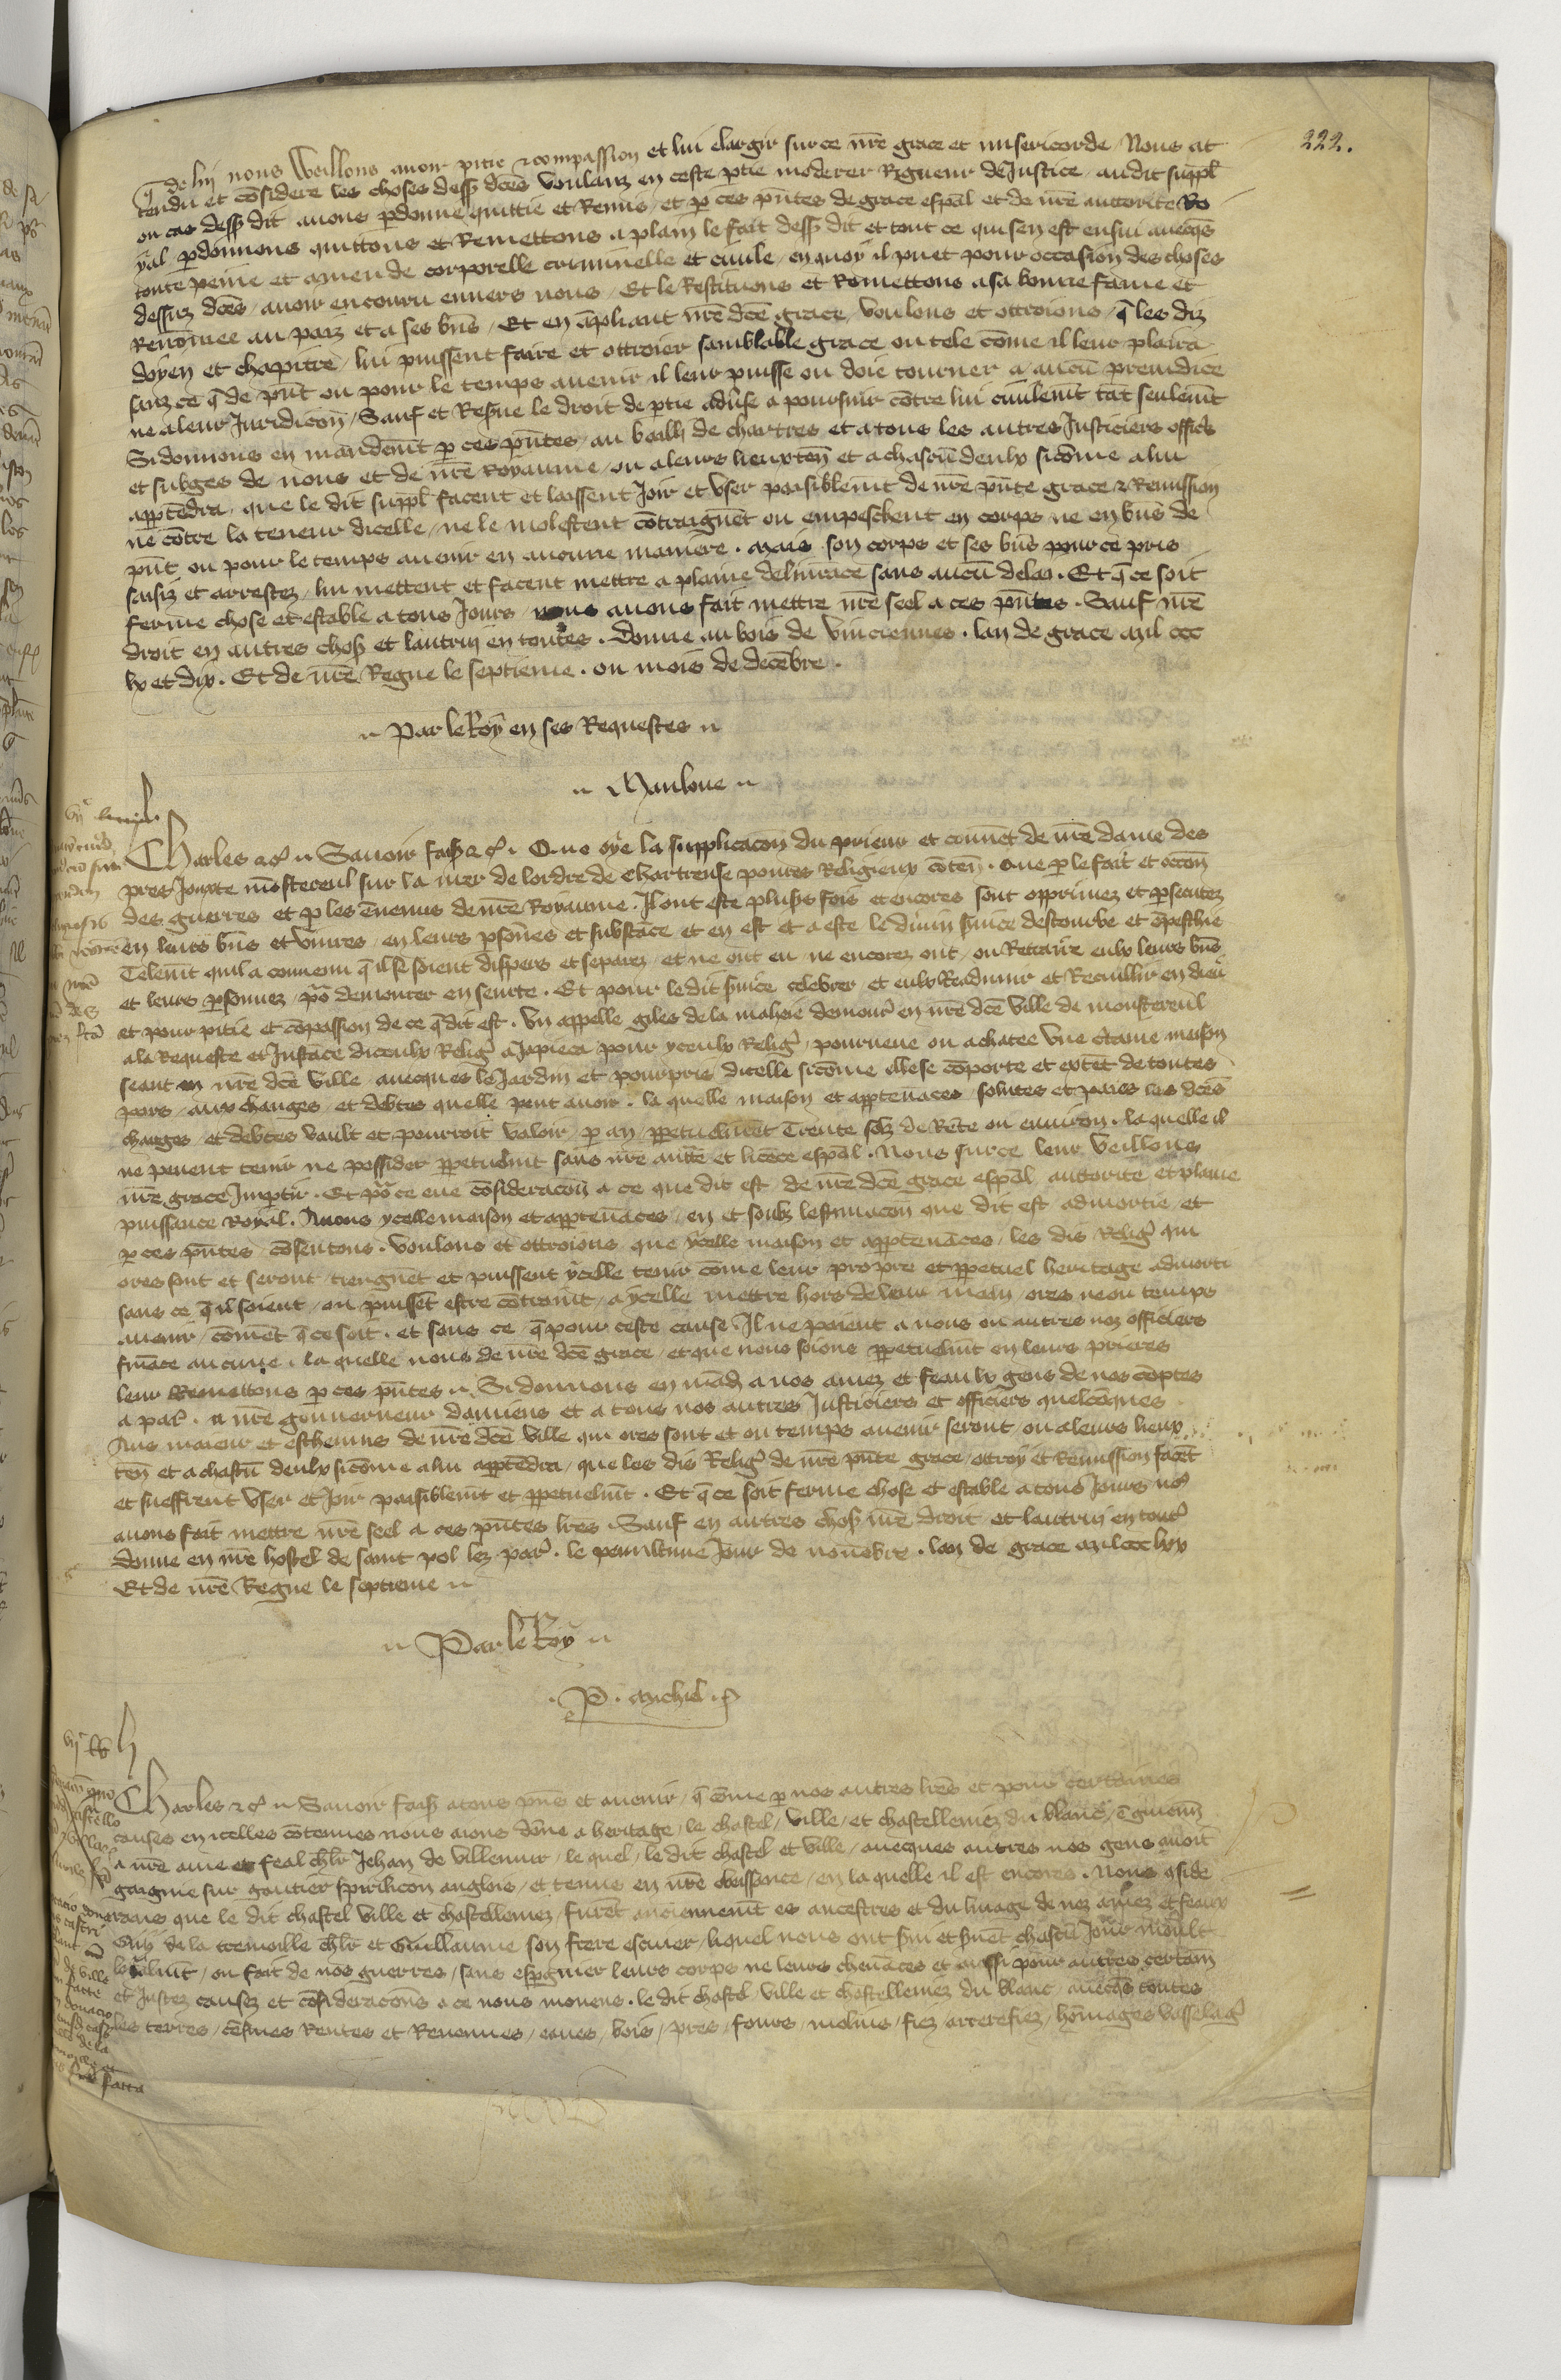 222.
q̄ de luy nous Veillons auoir pitie ⁊ compassion et lui elargir sur ce nr̄e grace et misericorde / Nous at
tendu et cōsidere les choses dess9 dcēs Voulanz en ceste ꝑtie moderer Rigueur de Justice / audit suppl̄
ou cas dess9 dit auons ꝑdonne quittie et Remis / et ꝑ ces pn̄tes de grace esp̄al et de nr̄e auctorite Ro
yal ꝑdonnons quittons et Remettons a plain le fait dess9 dit et tout ce qui sen est ensui auecq̄s
toute peine et amende corporelle criminelle et ciuile / en quoy il puet pour occasion des choses
dessuz dcēs / auoir encouru enuers nous / Et le Restituons et Remettons a sa bonne fame et
Renōmee au paiz et a ses bn̄s / Et en āpliant nr̄e dcē grace / Voulons et ottroions / q̄ les diz
doyen et chapitre / lui puissent faire et ottroier samblable grace ou tele cōme il leur plaira
sanz ce q̄ de pn̄t ou pour le temps auenir il leur puisse ou doie tourner a aucū preiudice
ne a leur Juridicoṅ / Sauf et Res̄ue le droit de ꝑtie aduse a poursuir cōtre lui ciuilemt̄ tāt seulemt̄
Si donnons en mandemt̄ ꝑ ces pn̄tes / au bailli de chartres et a tous les autres Justiciers offic̄s
et subges de nous et de nr̄e Royaume / ou a leurs lieuxten̄ et a chascū deulx sicōme a lui
apꝑtēdra / que le dit suppl̄ facent et laissent Joir et vser paisiblemt̄ de nr̄e pn̄te grace ⁊ Remission
ne cōtre la teneur dicelle / ne le molestent cōtraignēt ou empeschent en corps ne en bn̄s de
pn̄t ou pour le temps auenir en aucune maniere . Mais son corps et ses bn̄s pour ce pris
saisiz et arrestez / lui mettent et facent mettre a plaine deliurāce sans aucū delay . Et q̄ ce soit
ferme chose et estable a tous Jours / nous auons fait mettre nr̄e seel a ces pn̄tes . Sauf nr̄e
droit en autres chos9 et lautruy en toutes . Donne au bois de Vinciennes . lan de grace mil ccc
lx et dix . Et de nr̄e Regne le septieme . ou mois de decēbre .
Par le Roy en ses Requestes
Mauloue
Charles ⁊c̄ Sauoir fais9 ⁊c̄ . Que oye la supplicacoṅ du prieur et couuēt de nr̄e dame des
prez Jouxte mōstereul sur la mer de lordre de Chartreuse poures Religieux cōten̄ . que ꝑ le fait et occoṅ
des guerres et ꝑ les ēnemis de nr̄e Royaume . Il ont este plus̄s fois et encores sont opprimez et ꝑsecutez
en leurs bn̄s et viures / en leurs ꝑsōnes et substāce / et en est et a este le diuin s̄uice destourbe et ēpeschie
Telemt̄ quil a conuenu q̄ il se soient dispers et separez / et ne ont eu ne encorez ont / ou Retraire eulx leurs bn̄s
et leurs ꝑsonnez / pō demourer en seurte . Et pour ledit s̄uice celebrer et eulx Readunir et Recuillir en dieu
et pour pitie et cōpassion de ce q̄ dit est . Vn appelle giles de la mahoie demour̄ en nr̄e dcē Ville de monstereul
a la Requeste et Jnstāce diceulx Reliḡ a Japieca pour yceulx Reliḡ / pourueue ou achatee Vne c̄taine maison
seant en nr̄e dcē Ville / auecques le Jardin et pourpris dicelle sicōme elle se cōporte et extēt de toutes
pars / aux charges / et debtes quelle peut auoir . la quelle maison et apꝑtenāces / solutes et paiees les dcēs
charges / et debtes Vault et pourroit Valoir / ꝑ an ꝑpetuelmēt Trente solz de Rēte ou enuiron . la quelle il
ne peuent tenir ne possider ꝑpetuelmt̄ sans nr̄e auttē et licēce esp̄al . Nous sur ce leur Veillons
nr̄e grace Jmꝑtir . Et pō ce eue cōsideracoṅ a ce que dit est / de nr̄e dcē grace esp̄al auttorite et plaine
puissance Royal . Auons ycelle maison et apꝑtenāces / en et soubz lestimacoṅ que dit est admortie / et
ꝑ ces pn̄tes cōsentons . Voulons et ottroions que ycelle maison et apꝑtenāces / les dis Reliḡ qui
ores sont et seront / tiengnēt et puissent ycelle tenir cōme leur propre et ꝑpetuel heritage admorti
sans ce q̄ il soient / ou puissēt estre cōtraint / a ycelle mettre hors de leur main / ores ne ou temps
auenir / cōmēt q̄ ce soit . et sans ce q̄ pour ceste cause . Il ne paient a nous ou autres noz officiers
fināce aucune . la quelle nous de nr̄e dcē grace / et que nous soions ꝑpetuelmt̄ en leurs prieres
leur Remettons ꝑ ces pn̄tes . Si donnons en mād9 a nos amez et feaulx gens de nos cōptes
a par̄ . a nr̄e gouuerneur damiens et a tous nos autres Justiciers et officiers quelcōques
Aus maieur et escheuins de nr̄e dcē Ville qui ores sont et ou temps auenir seront / ou a leurs lieux
ten̄ et a chascū deulx sicōme a lui apꝑtēdra / que les dis Reliḡ de nr̄e pn̄te grace / ottroy et Remission facēt
et sueffrent vser et Joir paisiblemt̄ et ꝑpetuelmt̄ . Et q̄ ce soit ferme chose et estable a tous Jours no9
auons fait mettre nr̄e seel a ces pn̄tes lr̄es . Sauf en autres chos9 nr̄e droit et lautruy en tout̄
donne en nr̄e hostel de saint pol lez par̄ . le penultime Jour de nouēbre . lan de grace mil ccc lxx
Et de nr̄e Regne le septieme
Par le Roy
P . Michiel .
Charles ⁊c̄ Sauoir fais9 a tous pn̄s et auenir / q̄ cōme ꝑ nos autres lr̄es et pour certaines
causes en icelles cōtenues nous aions dōne a heritage / le chastel / Ville / et chastelleniez du blanc / ē guienn̄
a nr̄e ame et feal chl̄r Jehan de Villemur / le quel / le dit chastel et Ville / auecques autres nos gens auoit
gaignie sur gautier spurilicon anglois / et tenue en nr̄e obeissance / en la quelle il est encores . Nous ꝯside
rans que le dit chastel Ville et chastelleniez / furēt anciennemt̄ es ancestres et du linage de nez amez et feaux
Guy de la tremoille chl̄r et Guillaume son frere escuier / liquel nous ont s̄ui et s̄uēt chascū Jour moult
loyalmt̄ / ou fait de nos guerres / sans espgnier leurs corps ne leurs cheuāces et aussi pour autres certain
et Justez causez et cōsideracoṅs a ce nous mouens . le dit chastel / Ville et chastelleniez du blanc / auecq̄s toutes
les terres / cēsiues Rentes et Reuenues / eaues / bois / prez / fours / molins / fiez arrerefiez / hōmages Vasselaḡ